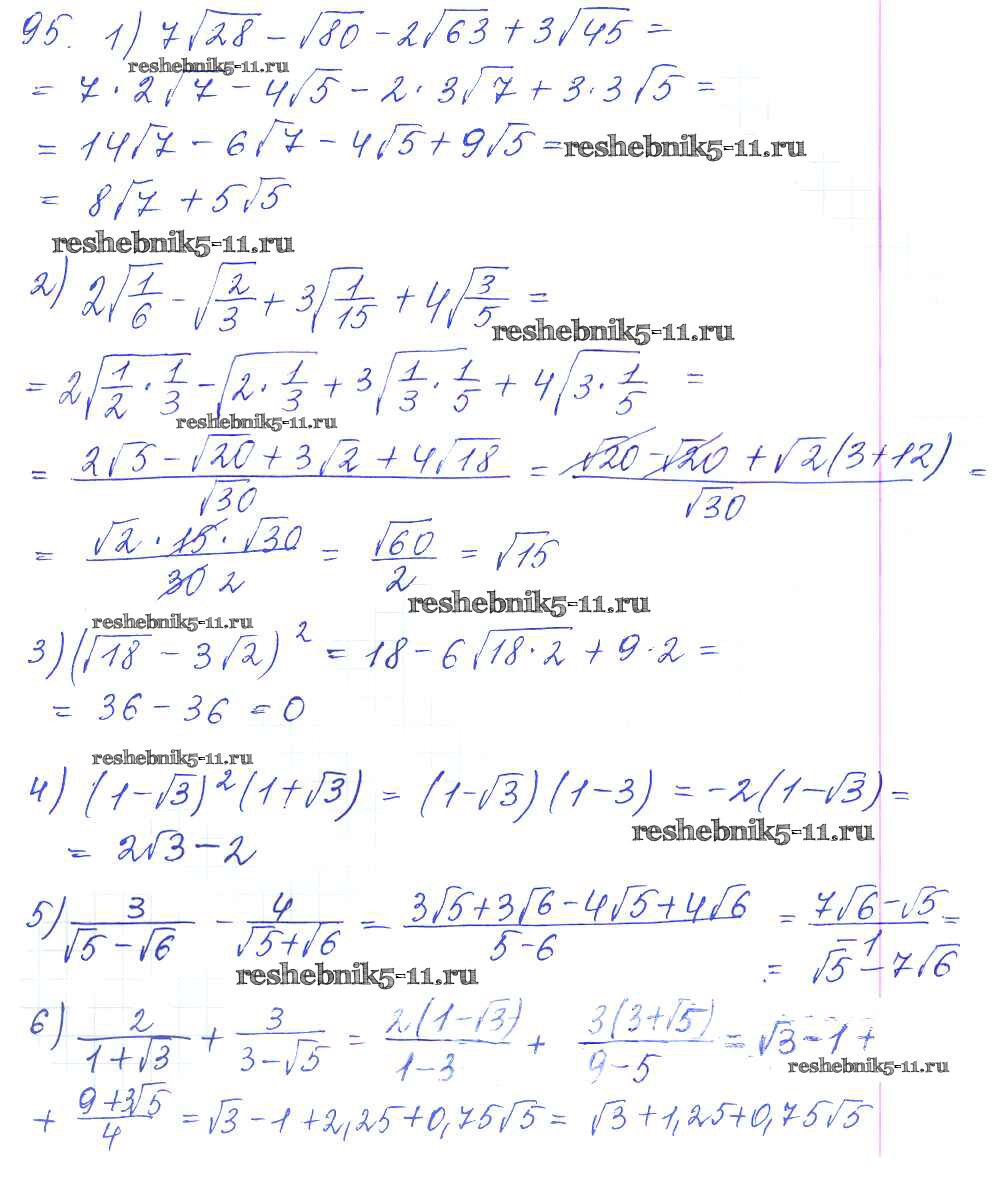 95. 1) 7√28 - √80 - 2√63 + 3√45 =
reshebnik5-11.ru
= 7·2√7 - 4√5 - 2·3√7 + 3·3√5 =
= 14√7 - 6√7 - 4√5 + 9√5 = reshebnik5-11.ru
= 8√7 + 5√5
reshebnik5-11.ru
2) 2√(1/6) - √(2/3) + 3√(1/15) + 4√(3/5) =
reshebnik5-11.ru
= 2√(1/2 · 1/3) - √(2 · 1/3) + 3√(1/3 · 1/5) + 4√(3 · 1/5) =
reshebnik5-11.ru
= (2√5 - √20 + 3√2 + 4√18)/√30 = (√20 - √20 + √2(3+12))/√30 =
= (√2 · 15 · √30)/(30 2) = √60/2 = √15
reshebnik5-11.ru
reshebnik5-11.ru
3) (√18 - 3√2)² = 18 - 6√(18·2) + 9·2 =
= 36 - 36 = 0
reshebnik5-11.ru
4) (1-√3)²(1+√3) = (1-√3)(1-3) = -2(1-√3) =
reshebnik5-11.ru
= 2√3 - 2
5) 3/(√5-√6) - 4/(√5+√6) = (3√5+3√6-4√5+4√6)/(5-6) = (7√6-√5)/(-1) =
reshebnik5-11.ru
= √5 - 7√6
6) 2/(1+√3) + 3/(3-√5) = 2(1-√3)/(1-3) + 3(3+√5)/(9-5) = √3 - 1 +
reshebnik5-11.ru
+ (9+3√5)/4 = √3 - 1 + 2,25 + 0,75√5 = √3 + 1,25 + 0,75√5